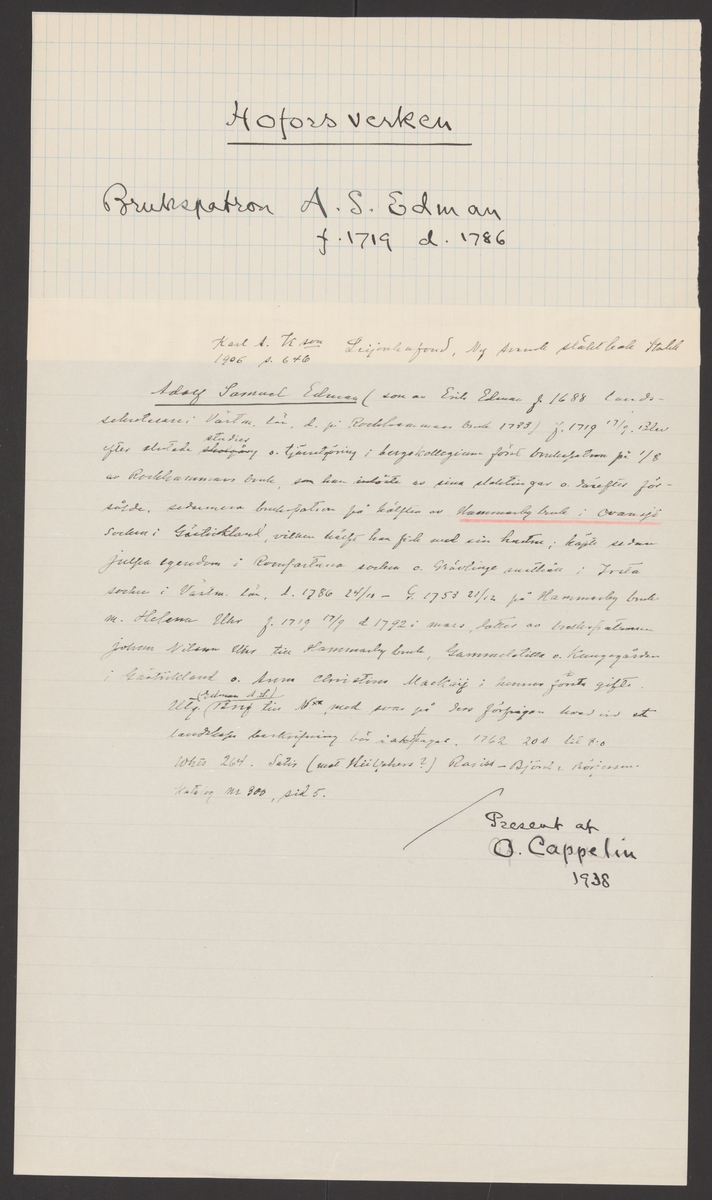 Hofors verken
Brukspatron A. S. Edman
f. 1719 d. 1786
Karl A. K:son Leijonhufvud, Ny svensk släktbok Sthlm
1906 s. 646
Adolf Samuel Edman (son av Erik Edman f. 1688 lands-
sekreterare i Västm. län, d. på Rockhammars bruk 1783) f. 1719 17/9. Blev
efter slutade studier o. tjänstgöring i bergskollegium först brukspatron på 1/8
av Rockhammars bruk, som han av sina släktingar o. därefter för-
sålde, sedermera brukspatron på hälften av Hammarby bruk i Ovansjö
socken i Gästrikland, vilken hälft han fick med sin hustru; köpte sedan
egendom i Romfartuna socken o. i
socken i Västm. län, d. 1786 24/11 – G. 1753 21/12 på Hammarby bruk
m. Helena Uhr f. 1719 17/9 d 1792 i mars, dotter av brukspatronen
Johan Nilsson Uhr till Hammarby bruk, Gammelstilla o. Kungsgården
i Gästrikland o. Anna Christina Mackeij i hennes första gifte.
(Edman A.S.)
Utg. Bref till N**, med svar på dess förfrågan hvad vid ett
landskaps beskrifning bör i akttagas. 1762 20 s lit 4:o
264. Setts (mot ?) – Björck & Börjesson
Katalog nr 300, sid 5.
Present af
O. Cappelin
1938